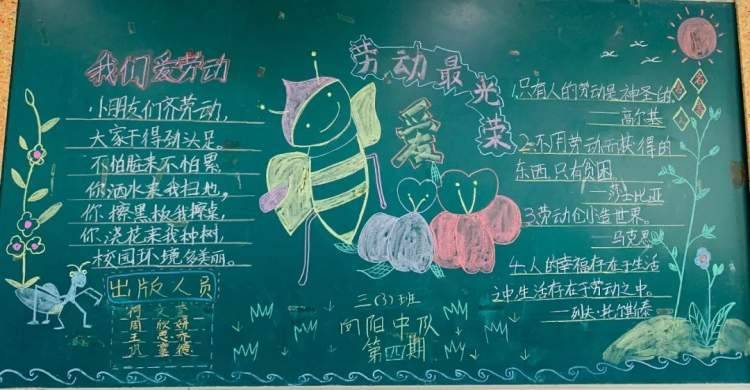 我们爱劳动
小朋友们齐劳动，
大家干得劲头足。
不怕脏来不怕累，
你洒水来我扫地，
你擦黑板我擦桌，
你浇花来我种树，
校园环境多美丽。
出版人员
劳动最光荣
爱
三(3)班
向阳中队
第四期
1.只有人的劳动是神圣的。
——高尔基
2.不用劳动而获得的
东西只有贫困。
——莎士比亚
3.劳动创造世界。
——马克思
4.人的幸福存在于生活
之中，生活存在于劳动之中。
——列夫·托尔斯泰